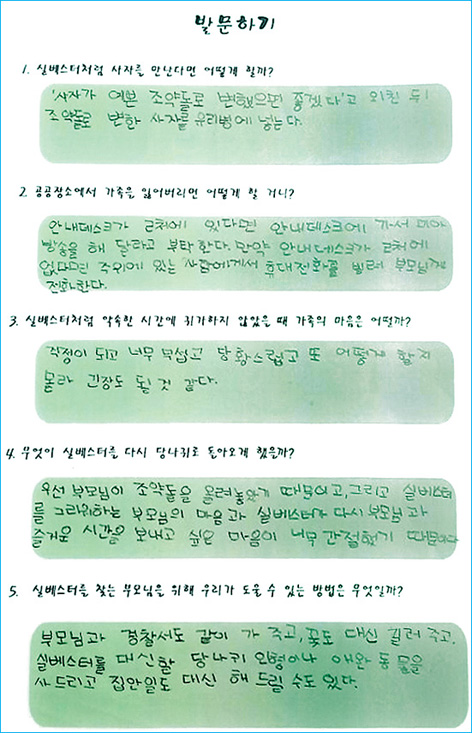 발문하기
1. 실베스터처럼 사자를 만난다면 어떻게 할까?
'사자가 예쁜 조약돌로 변했으면 좋겠다'고 외친 뒤
조약돌로 변한 사자를 유리병에 넣는다.
2. 공공장소에서 가족을 잃어버리면 어떻게 할 거니?
안내데스크가 근처에 있다면 안내데스크에 가서 미아
방송을 해 달라고 부탁한다. 만약 안내데스크가 근처에
없다면 주위에 있는 사람에게서 휴대전화를 빌려 부모님께
전화한다.
3. 실베스터처럼 약속한 시간에 귀가하지 않았을 때 가족의 마음은 어떨까?
걱정이 되고 너무 무섭고 당황스럽고 또 어떻게 할지
몰라 긴장도 될 것 같다.
4. 무엇이 실베스터를 다시 당나귀로 돌아오게 했을까?
우선 부모님이 조약돌을 올려놓았기 때문이고, 그리고 실베스터
를 그리워하는 부모님의 마음과 실베스터가 다시 부모님과
즐거운 시간을 보내고 싶은 마음이 너무 간절했기 때문이다
5. 실베스터를 찾는 부모님을 위해 우리가 도울 수 있는 방법은 무엇일까?
부모님과 경찰서도 같이 가 주고, 꽃도 대신 길러 주고.
실베스터를 대신할 당나귀 인형이나 애완동물을
사드리고 집안일도 대신 해 드릴 수도 있다.